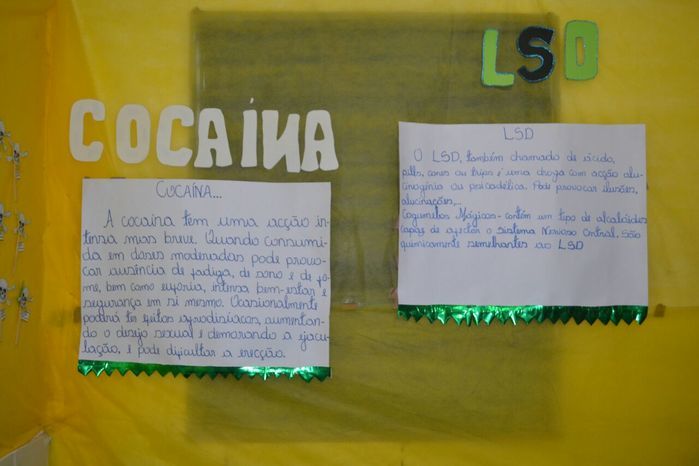 COCAÍNA
COCAÍNA...
A cocaína tem uma acção in-
tensa mas breve. Quando consumi-
da em doses moderadas pode provo-
car ausência de fadiga, de sono e de fo-
me, bem como euforia, intenso bem-estar e
segurança em si mesmo. Ocasionalmente
poderá ter efeitos afrodisíacos, aumentan-
do o desejo sexual e demorando a ejacu-
lação, e pode dificultar a erecção.
LSD
LSD
O LSD, também chamado de ácido,
pills, cones ou trips é uma droga com acção alu-
cinogénia ou psicadélica. Pode provocar ilusões,
alucinações,...
Cogumelos Mágicos - contém um tipo de alcalóides
capaz de afectar o sistema Nervoso Central. São
quimicamente semelhantes ao LSD